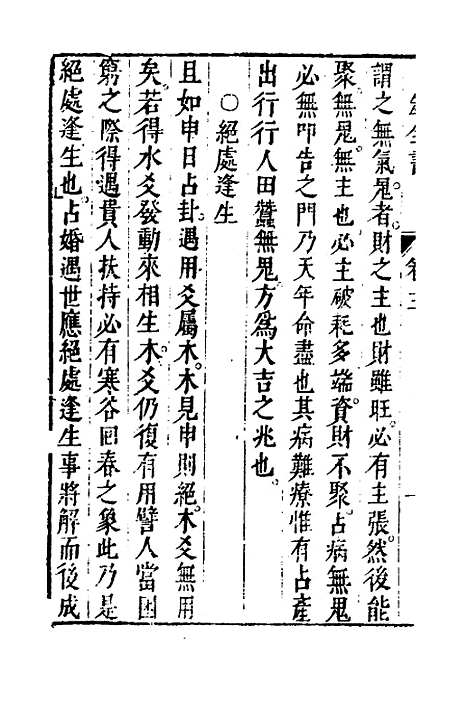 謂之無氣鬼者。財之主也財雖旺。必有主張然後能
聚無鬼無主也必主破耗多端。資財不聚。占病無鬼
必無叩告之門乃天年命盡也其病難療惟有占產
出行行人田蠶無鬼方為大吉之兆也。
○絕處逢生
且如申日占卦。遇用爻屬木。木見申則絕。木爻無用
矣。若得水爻發動來相生。木爻仍復有用譬人當困
窮之際得遇貴人扶持必有寒谷回春之象此乃是
絕處逢生也。占婚遇世應絕處逢生事將解而後成
全書
卷三